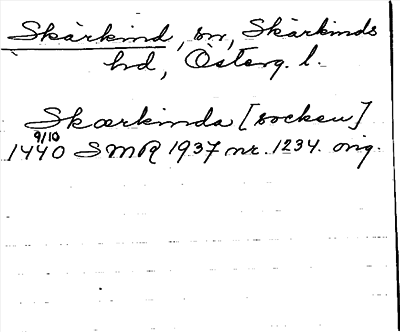 Skärkind, sn, Skärkinds
hd, Österg. l.
Skærkinda [socken]
9/10
1440 SMR 1937 nr. 1234. orig.